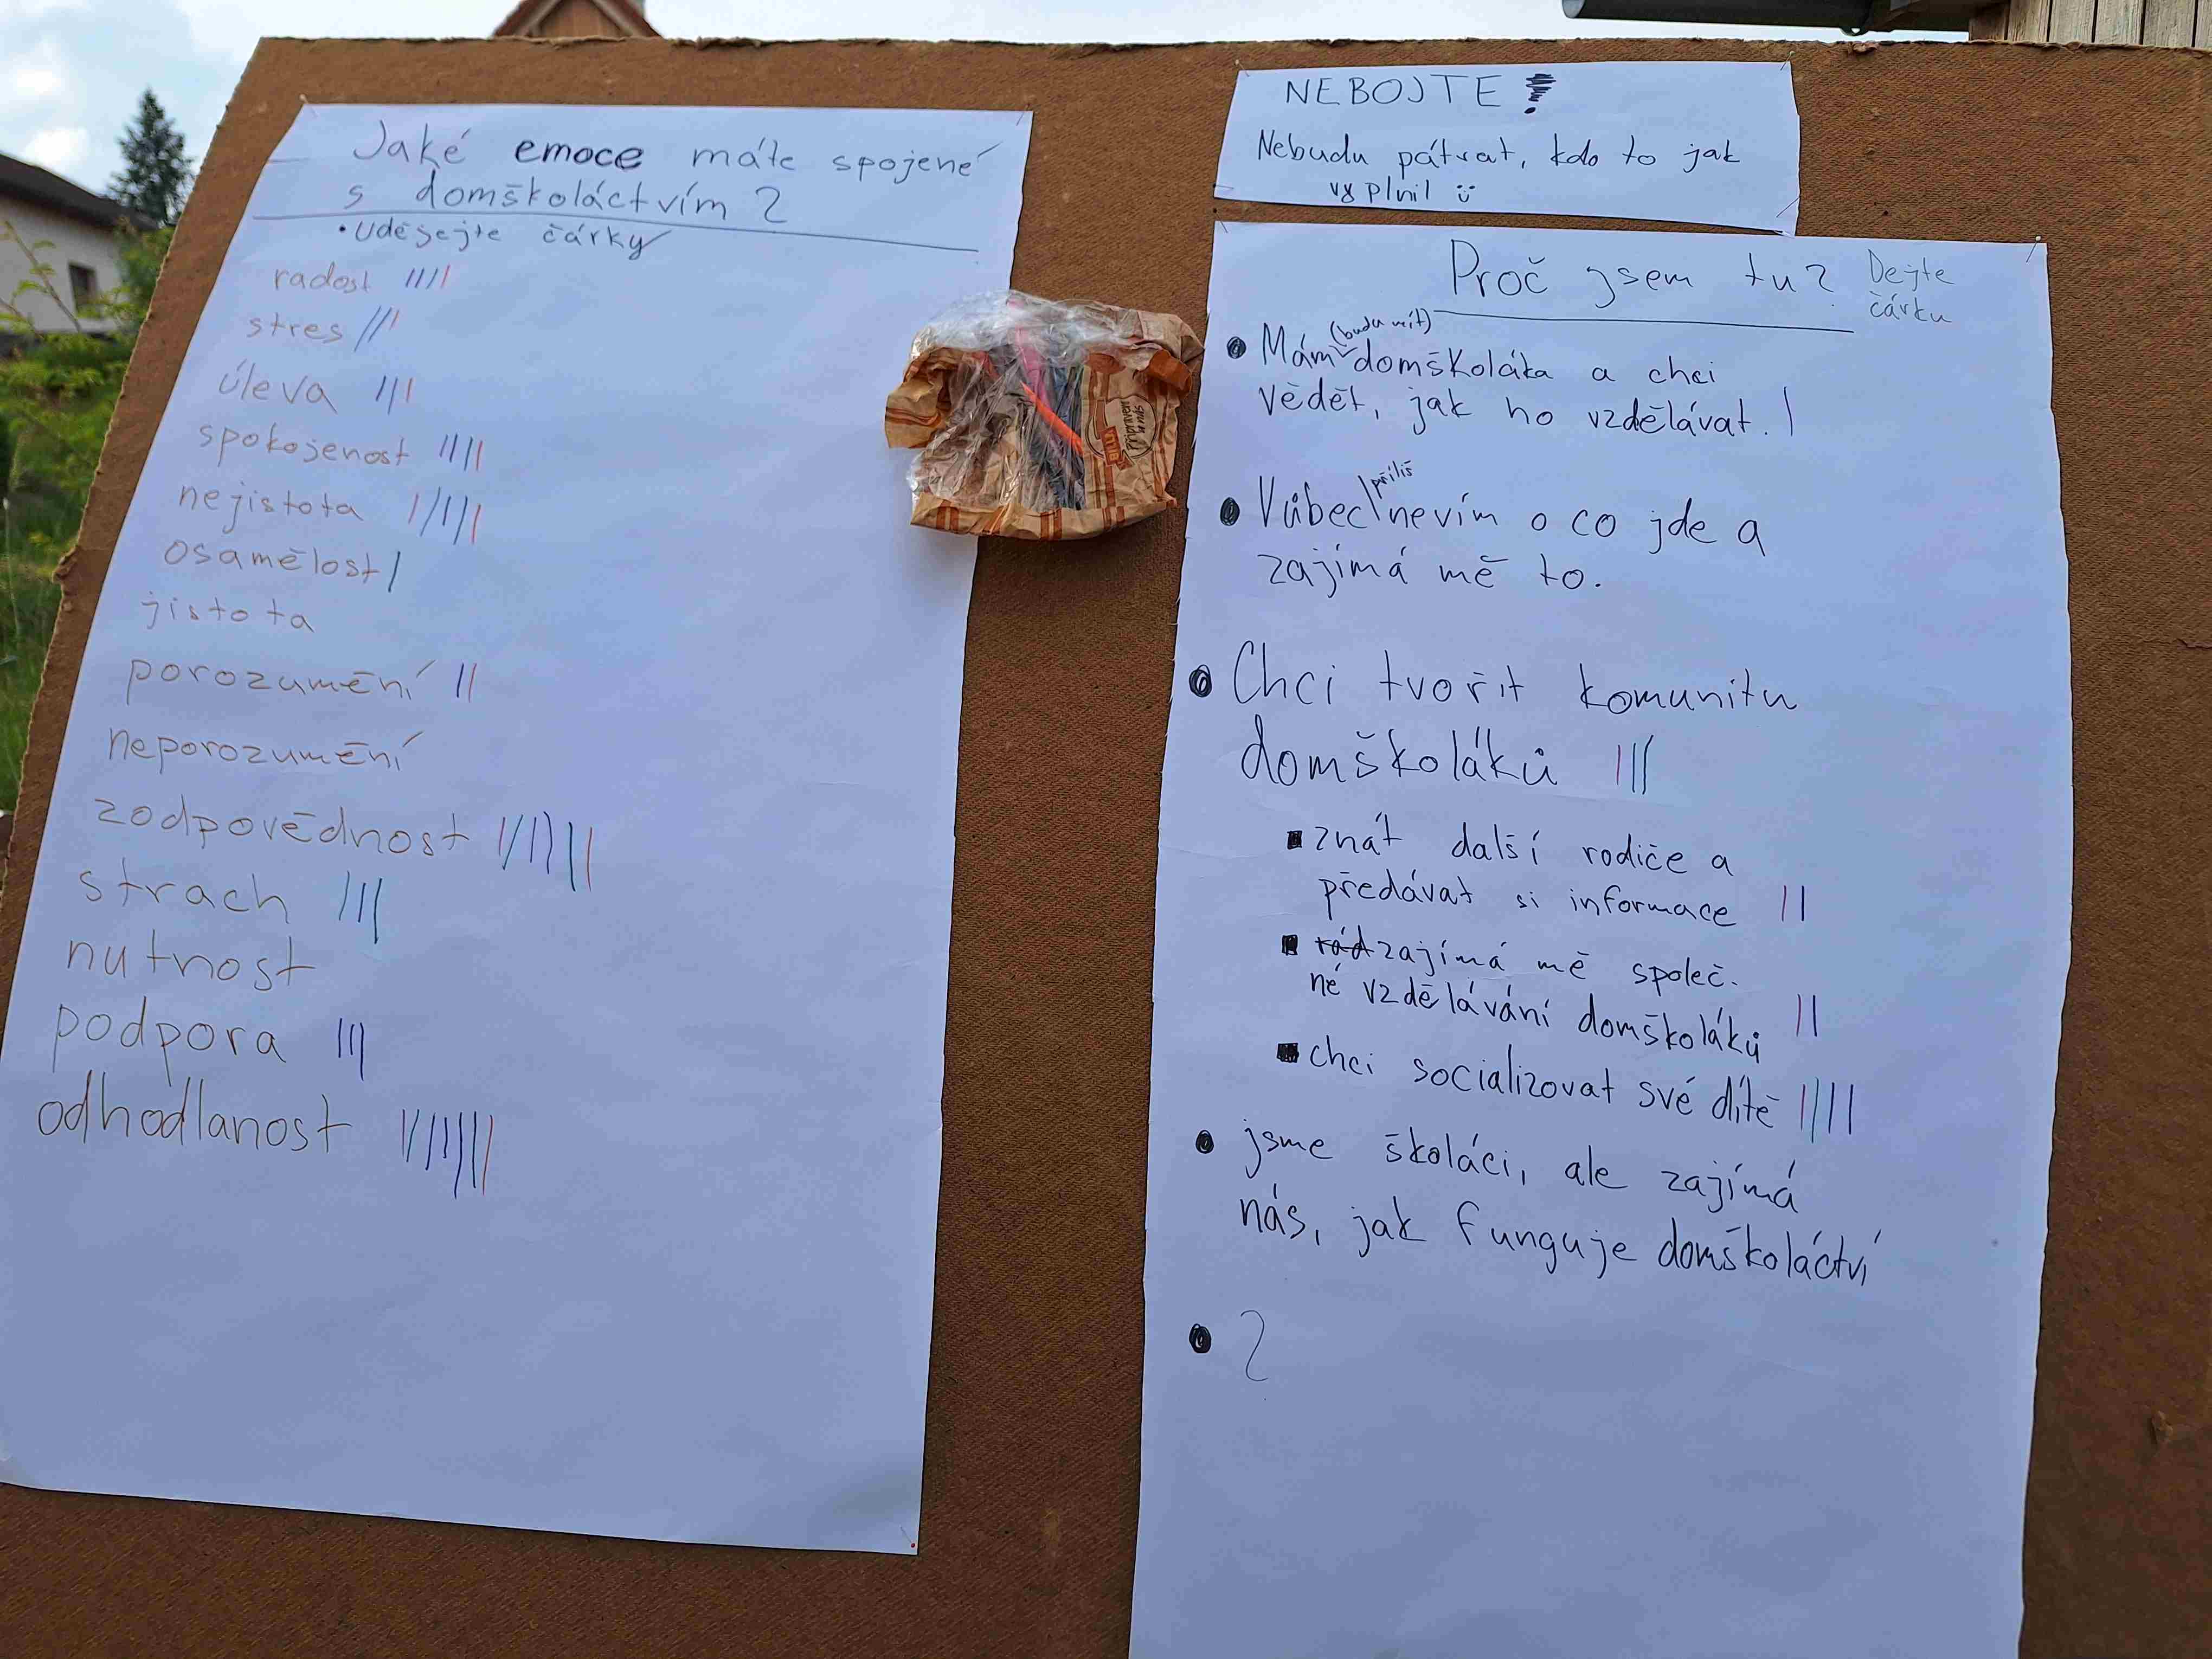 Jaké emoce máte spojené
s domškoláctvím?
• Udělejte čárky
radost ||||
stres |||
úleva |||
spokojenost ||||
nejistota |||||
osamělost |
jistota
porozumění ||
neporozumění
zodpovědnost |||||||
strach |||
nutnost
podpora |||
odhodlanost ||||||||
připraveno
u nás
NEBOJTE!
Nebudu pátrat, kdo to jak
vyplnil ü
Proč jsem tu? Dejte
čárku
(budu mít)
• Mám domškoláka a chci
vědět, jak ho vzdělávat. |
příliš
• Vůbec\nevím o co jde a
zajímá mě to.
• Chci tvořit komunitu
domškoláků |||
▪ znát další rodiče a
předávat si informace ||
▪ rád zajímá mě společ-
né vzdělávání domškoláků ||
▪ chci socializovat své dítě ||||
• jsme školáci, ale zajímá
nás, jak funguje domškoláctví
• ?